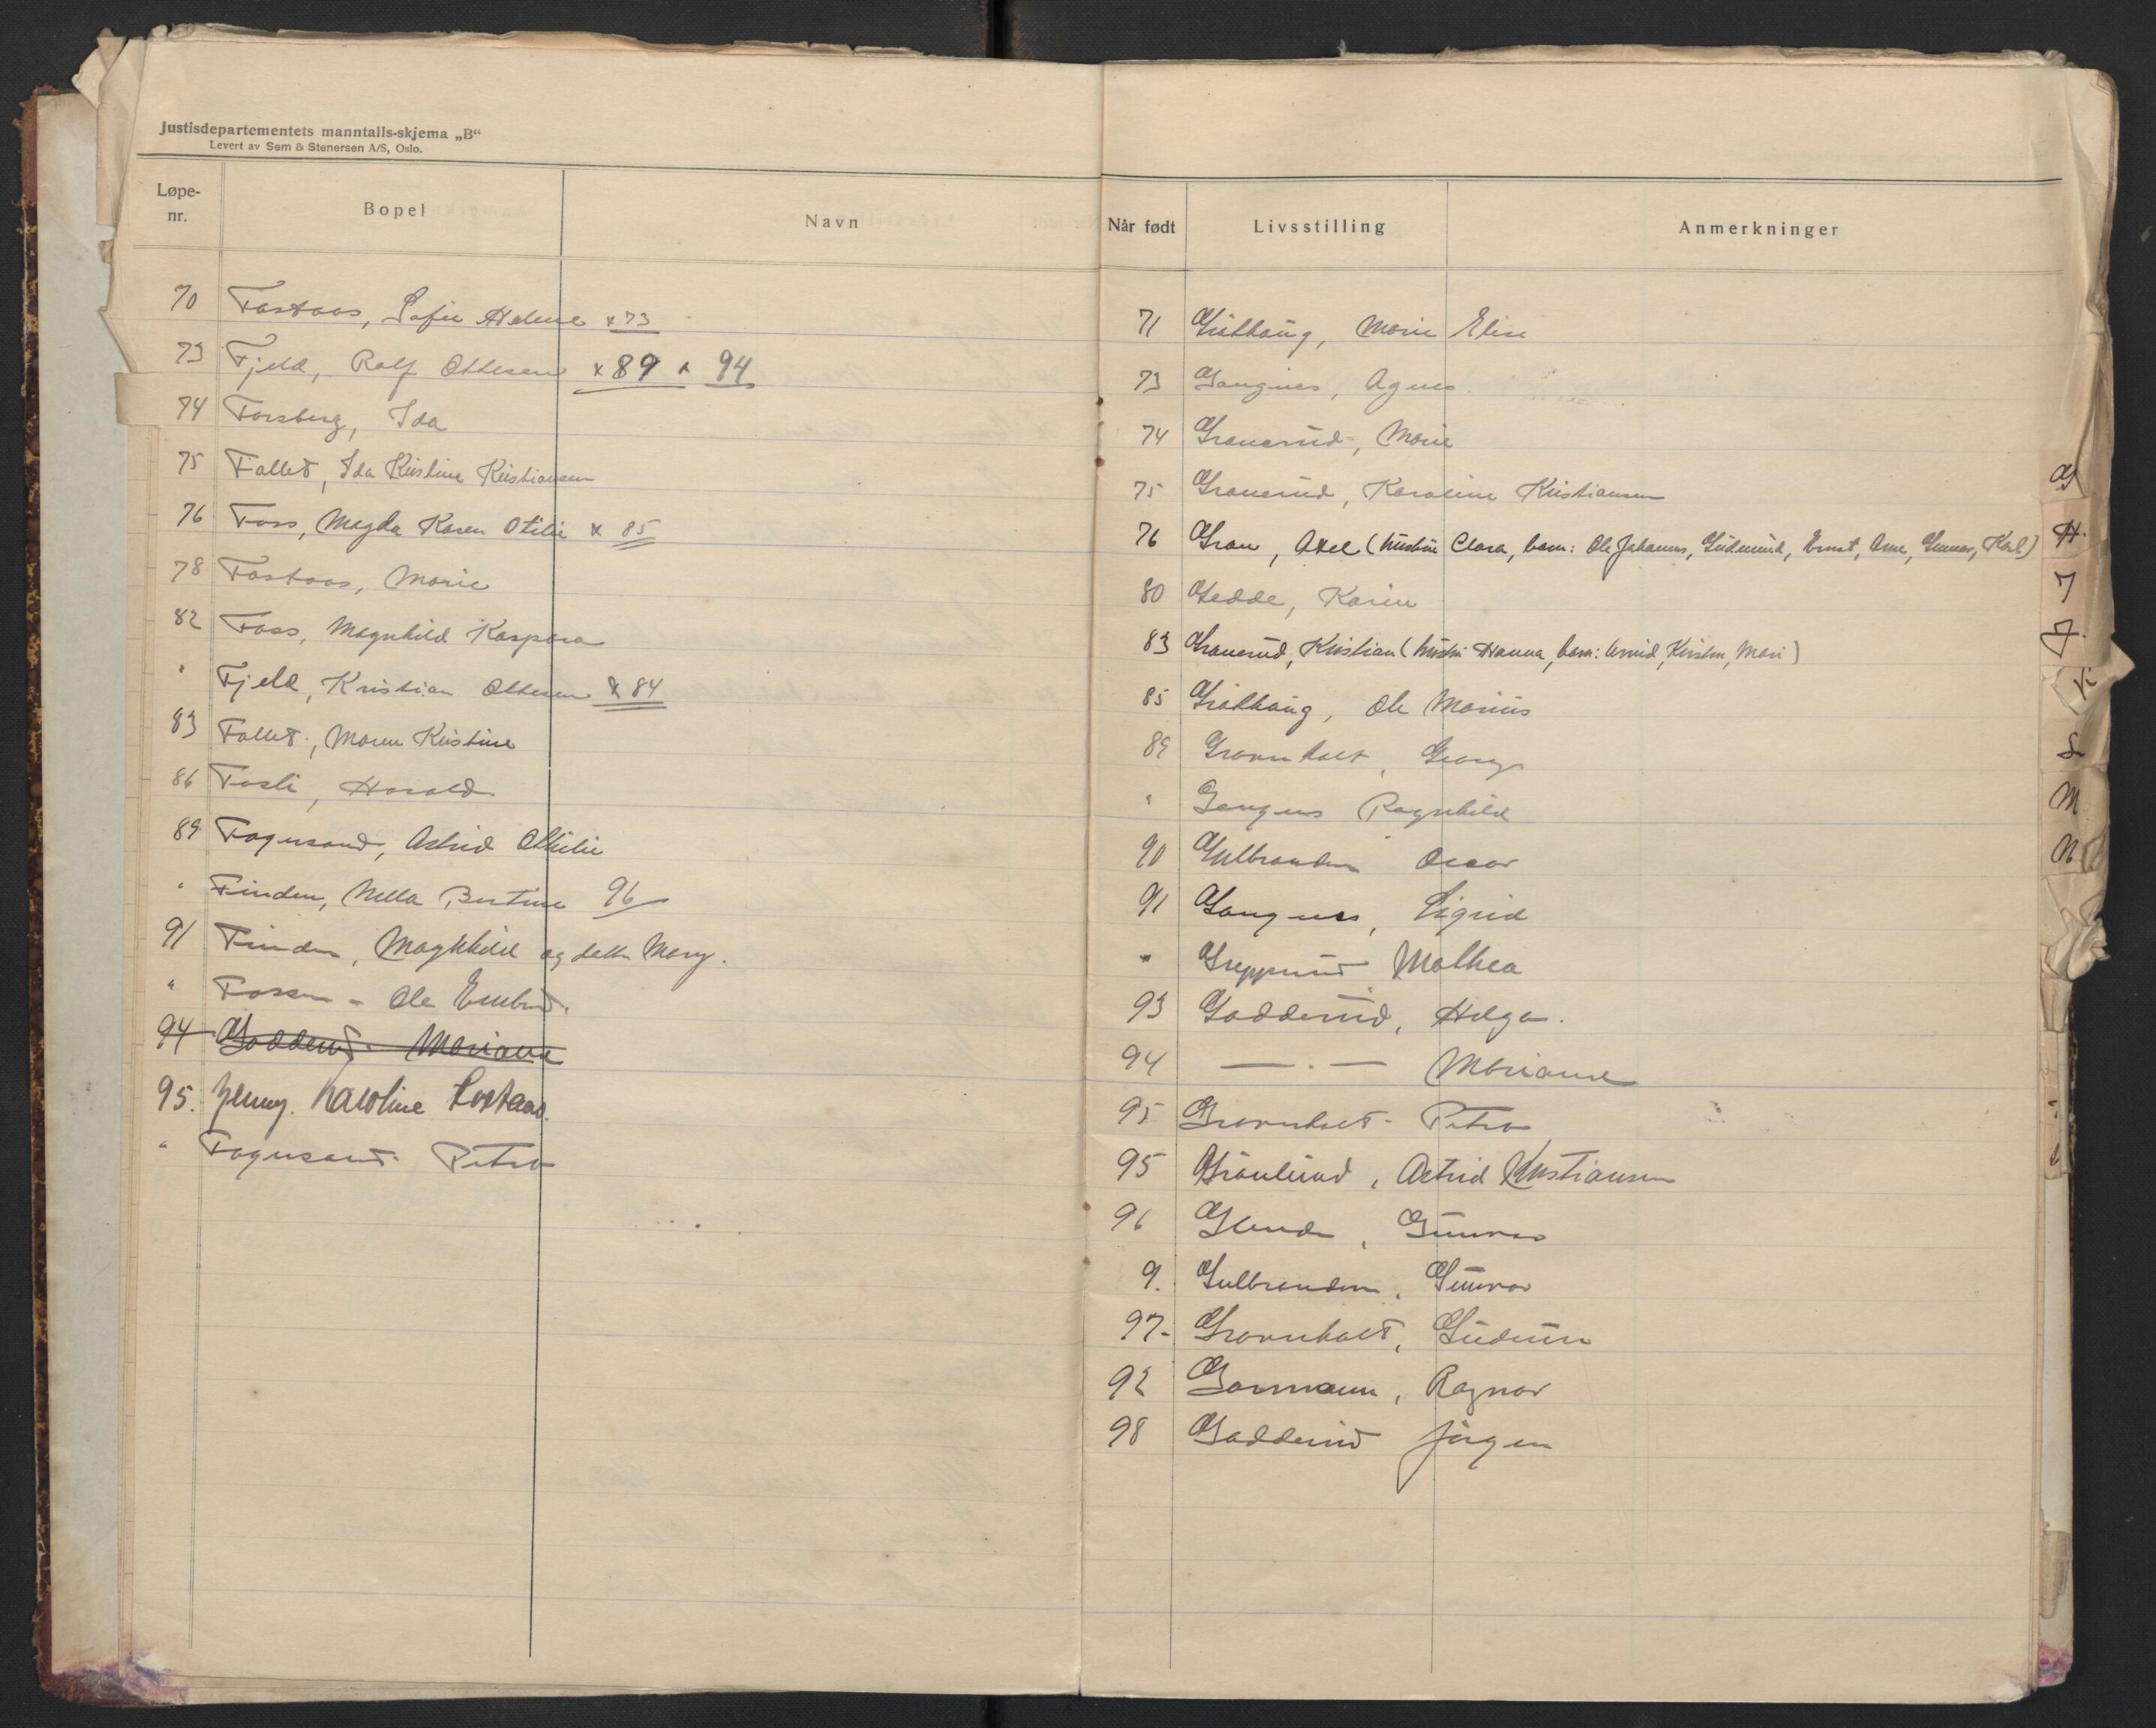 Justisdepartementets manntalls-skjema „B“
Levert av Sem & Stenersen A/S, Oslo.
Løpe-
nr.
Bopel
Navn
70 Fostaas, Sofie Helene x 73
73 Fjeld, Rolf Ottesen x 89 x 94
74 Forsberg, Ida
75 Fallet, Ida Kristine Kristiansen
76 Foss, Magda Karen Otilie x 85
78 Fostaas, Marie
82 Foss, Magnhild Kaspara
" Fjeld, Kristian Ottesen x 84
83 Fallet, Maren Kristine
86 Fosli, Harald
89 Fagersand, Astrid Othilie
" Finden, Nella Bertine 96
91 Finden, Maghhild og datter Mary.
" Fossen - Ole Embret.
94 Godderud. Mariane
95. Jenny. Karoline Fostaas.
" Fagersand. Petra
Når født
Livsstilling
Anmerkninger
71 Gråthaug, Marie Elise
73 Gangnes, Agnes
74 Granerud, Marie
75 Granerud, Karoline Kristiansen
76 Gran, Axel (hustru Clara, barn: Ole Johannes, Gudmund, Ernst, Arne, Gunnar, Karl)
80 Gedde, Karin
83 Granerud, Kristian (hustru Hanna, barn: Arvid, Kirsten, Mari)
85 Gråthaug, Ole Marius
89 Gravnholt, Georg
" Gangnes Ragnhild
90 Gulbrandsen Oscar
91 Gangnes, Sigrid
" Grepperud Mathea
93 Godderud, Helga.
94 — . — Mariane
95 Gravnholt - Petra
95 Grønlund, Astrid Kristiansen
96 , Gunvor
9. Gulbrandsen, Gunvor
97- Gravnholt, Gudrun
92 Garmann, Ragnar
98 Godderud Jørgen
G
H.
I
J.
K
L
M
N